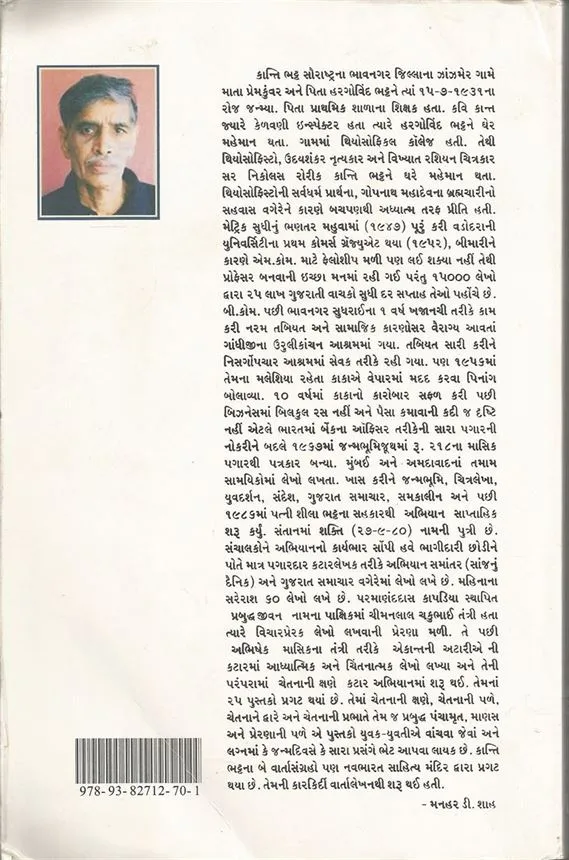 કાન્તિ ભટ્ટ સૌરાષ્ટ્રના ભાવનગર જિલ્લાના ઝાંઝમેર ગામે
માતા પ્રેમકુંવર અને પિતા હરગોવિંદ ભટ્ટને ત્યાં ૧૫-૭-૧૯૩૧ના
રોજ જન્મ્યા. પિતા પ્રાથમિક શાળાના શિક્ષક હતા. કવિ કાન્ત
જ્યારે કેળવણી ઇન્સ્પેક્ટર હતા ત્યારે હરગોવિંદ ભટ્ટને ઘેર
મહેમાન થતા. ગામમાં થિયોસોફિકલ કૉલેજ હતી. તેથી
થિયોસોફિસ્ટો, ઉદયશંકર નૃત્યકાર અને વિખ્યાત રશિયન ચિત્રકાર
સર નિકોલસ રોરીક કાન્તિ ભટ્ટને ઘરે મહેમાન થતા.
થિયોસોફિસ્ટોની સર્વધર્મ પ્રાર્થના, ગોપનાથ મહાદેવના બ્રહ્મચારીનો
સહવાસ વગેરેને કારણે બચપણથી અધ્યાત્મ તરફ પ્રીતિ હતી.
મેટ્રિક સુધીનું ભણતર મહુવામાં (૧૯૪૭) પૂરું કરી વડોદરાની
યુનિવર્સિટીના પ્રથમ કોમર્સ ગ્રેજ્યુએટ થયા (૧૯૫૨), બીમારીને
કારણે એમ.કોમ. માટે ફેલોશીપ મળી પણ લઈ શક્યા નહીં તેથી
પ્રોફેસર બનવાની ઇચ્છા મનમાં રહી ગઈ પરંતુ ૧૫૦૦૦ લેખો
દ્વારા ૨૫ લાખ ગુજરાતી વાચકો સુધી દર સપ્તાહ તેઓ પહોંચે છે.
બી.કોમ. પછી ભાવનગર સુધરાઈના ૧ વર્ષ ખજાનચી તરીકે કામ
કરી નરમ તબિયત અને સામાજિક કારણોસર વૈરાગ્ય આવતાં
ગાંધીજીના ઉરુલીકાંચન આશ્રમમાં ગયા. તબિયત સારી કરીને
નિસર્ગોપચાર આશ્રમમાં સેવક તરીકે રહી ગયા. પણ ૧૯૫૬માં
તેમના મલેશિયા રહેતા કાકાએ વેપારમાં મદદ કરવા પિનાંગ
બોલાવ્યા. ૧૦ વર્ષમાં કાકાનો કારોબાર સફળ કરી પછી
બિઝનેસમાં બિલકુલ રસ નહીં અને પૈસા કમાવાની કદી જ દૃષ્ટિ
નહીં એટલે ભારતમાં બેંકના ઑફિસર તરીકેની સારા પગારની
નોકરીને બદલે ૧૯૬૭માં જન્મભૂમિજૂથમાં રૂ. ૨૧૮ના માસિક
પગારથી પત્રકાર બન્યા. મુંબઈ અને અમદાવાદનાં તમામ
સામયિકોમાં લેખો લખતા. ખાસ કરીને જન્મભૂમિ, ચિત્રલેખા,
યુવદર્શન, સંદેશ, ગુજરાત સમાચાર, સમકાલીન અને પછી
૧૯૮૬માં પત્ની શીલા ભટ્ટના સહકારથી અભિયાન સાપ્તાહિક
શરૂ કર્યું. સંતાનમાં શક્તિ (૨૭-૯-૮૦) નામની પુત્રી છે.
સંચાલકોને અભિયાનનો કાર્યભાર સોંપી હવે ભાગીદારી છોડીને
પોતે માત્ર પગારદાર કટારલેખક તરીકે અભિયાન સમાંતર (સાંજનું
દૈનિક) અને ગુજરાત સમાચાર વગેરેમાં લેખો લખે છે. મહિનાના
સરેરાશ ૬૦ લેખો લખે છે. પરમાણંદદાસ કાપડિયા સ્થાપિત
પ્રબુદ્ધ જીવન નામના પાક્ષિકમાં ચીમનલાલ ચકુભાઈ તંત્રી હતા
ત્યારે વિચારપ્રેરક લેખો લખવાની પ્રેરણા મળી. તે પછી
અભિષેક માસિકના તંત્રી તરીકે એકાન્તની અટારીએ ની
કટારમાં આધ્યાત્મિક અને ચિંતનાત્મક લેખો લખ્યા અને તેની
પરંપરામાં ચેતનાની ક્ષણે કટાર અભિયાનમાં શરૂ થઈ. તેમનાં
૨૫ પુસ્તકો પ્રગટ થયાં છે. તેમાં ચેતનાની ક્ષણે, ચેતનાની પળે,
ચેતનાને દ્વારે અને ચેતનાની પ્રભાતે તેમ જ પ્રબુદ્ધ પંચામૃત, માણસ
અને પ્રેરણાની પળે એ પુસ્તકો યુવક-યુવતીએ વાંચવા જેવાં અને
લગ્નમાં કે જન્મદિવસે કે સારા પ્રસંગે ભેટ આપવા લાયક છે. કાન્તિ
ભટ્ટના બે વાર્તાસંગ્રહો પણ નવભારત સાહિત્ય મંદિર દ્વારા પ્રગટ
થયા છે. તેમની કારકિર્દી વાર્તાલેખનથી શરૂ થઈ હતી.
- મનહર ડી. શાહ
978-93-82712-70-1